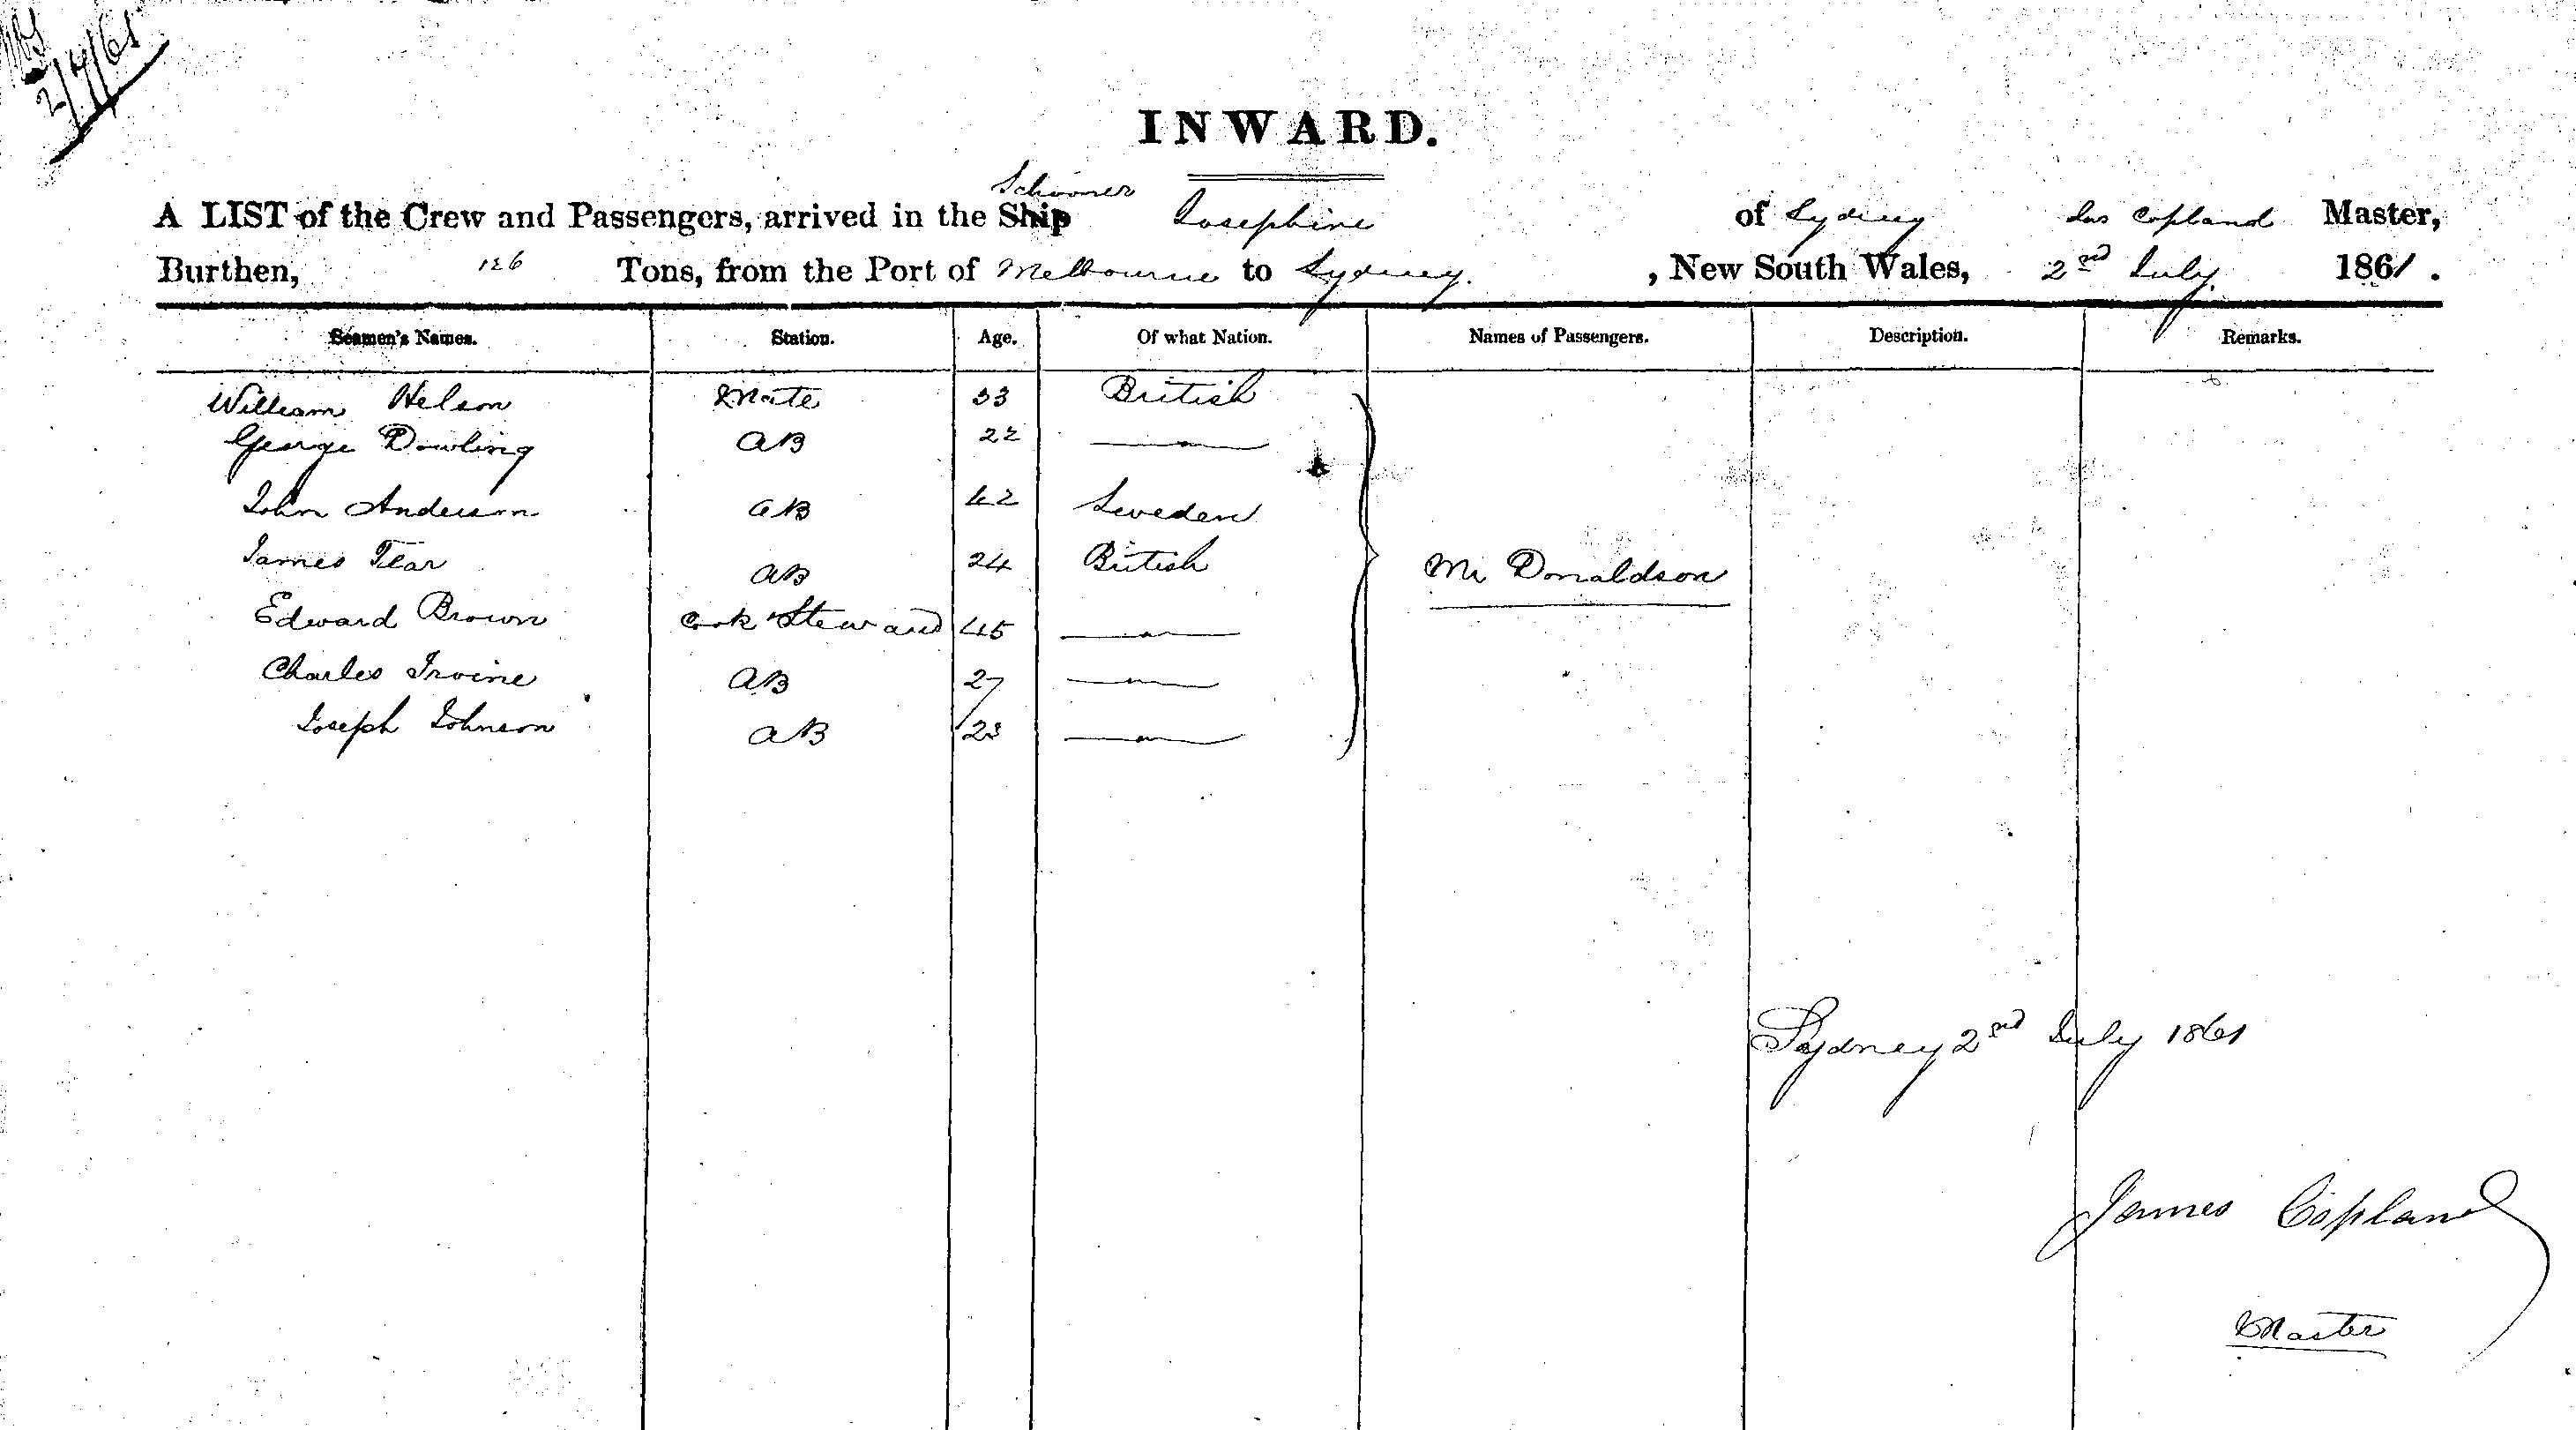 2/7/61
INWARD.
Schooner
A LIST of the Crew and Passengers, arrived in the Ship Josephine of Sydney Jas Copland Master,
Burthen, 126 Tons, from the Port of Melbourne to Sydney. , New South Wales, 2nd July 1861.
Seamen's Names. Station. Age. Of what Nation. Names of Passengers. Description. Remarks.
William Nelson Mate 33 British
George Dowling AB 22 —"—
John Anderson AB 42 Sweden
James Tear AB 24 British Mr Donaldson
Edward Brown Cook & Steward 45 —"—
Charles Irvine AB 27 —"—
Joseph Johnson AB 23 —"—
Sydney 2nd July 1861
James Copland
Master